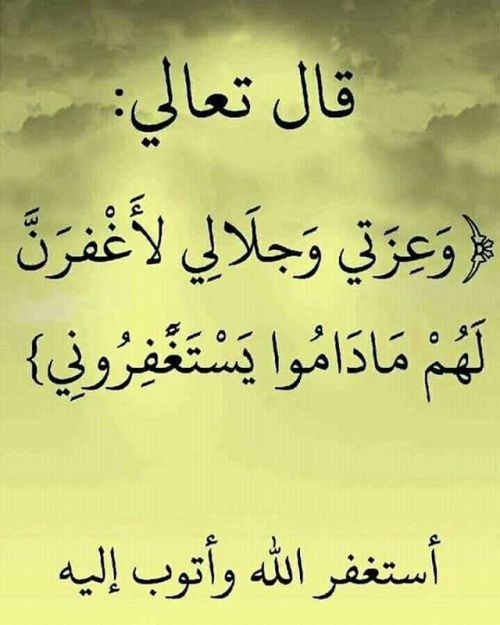 قال تعالي:
﴿وَعِزَتي وَجلَالِي لأَغْفرَنَّ
لَهُمْ مَادَامُوا يَسْتَغَْفِرُوني}
أستغفر الله وأتوب إليه